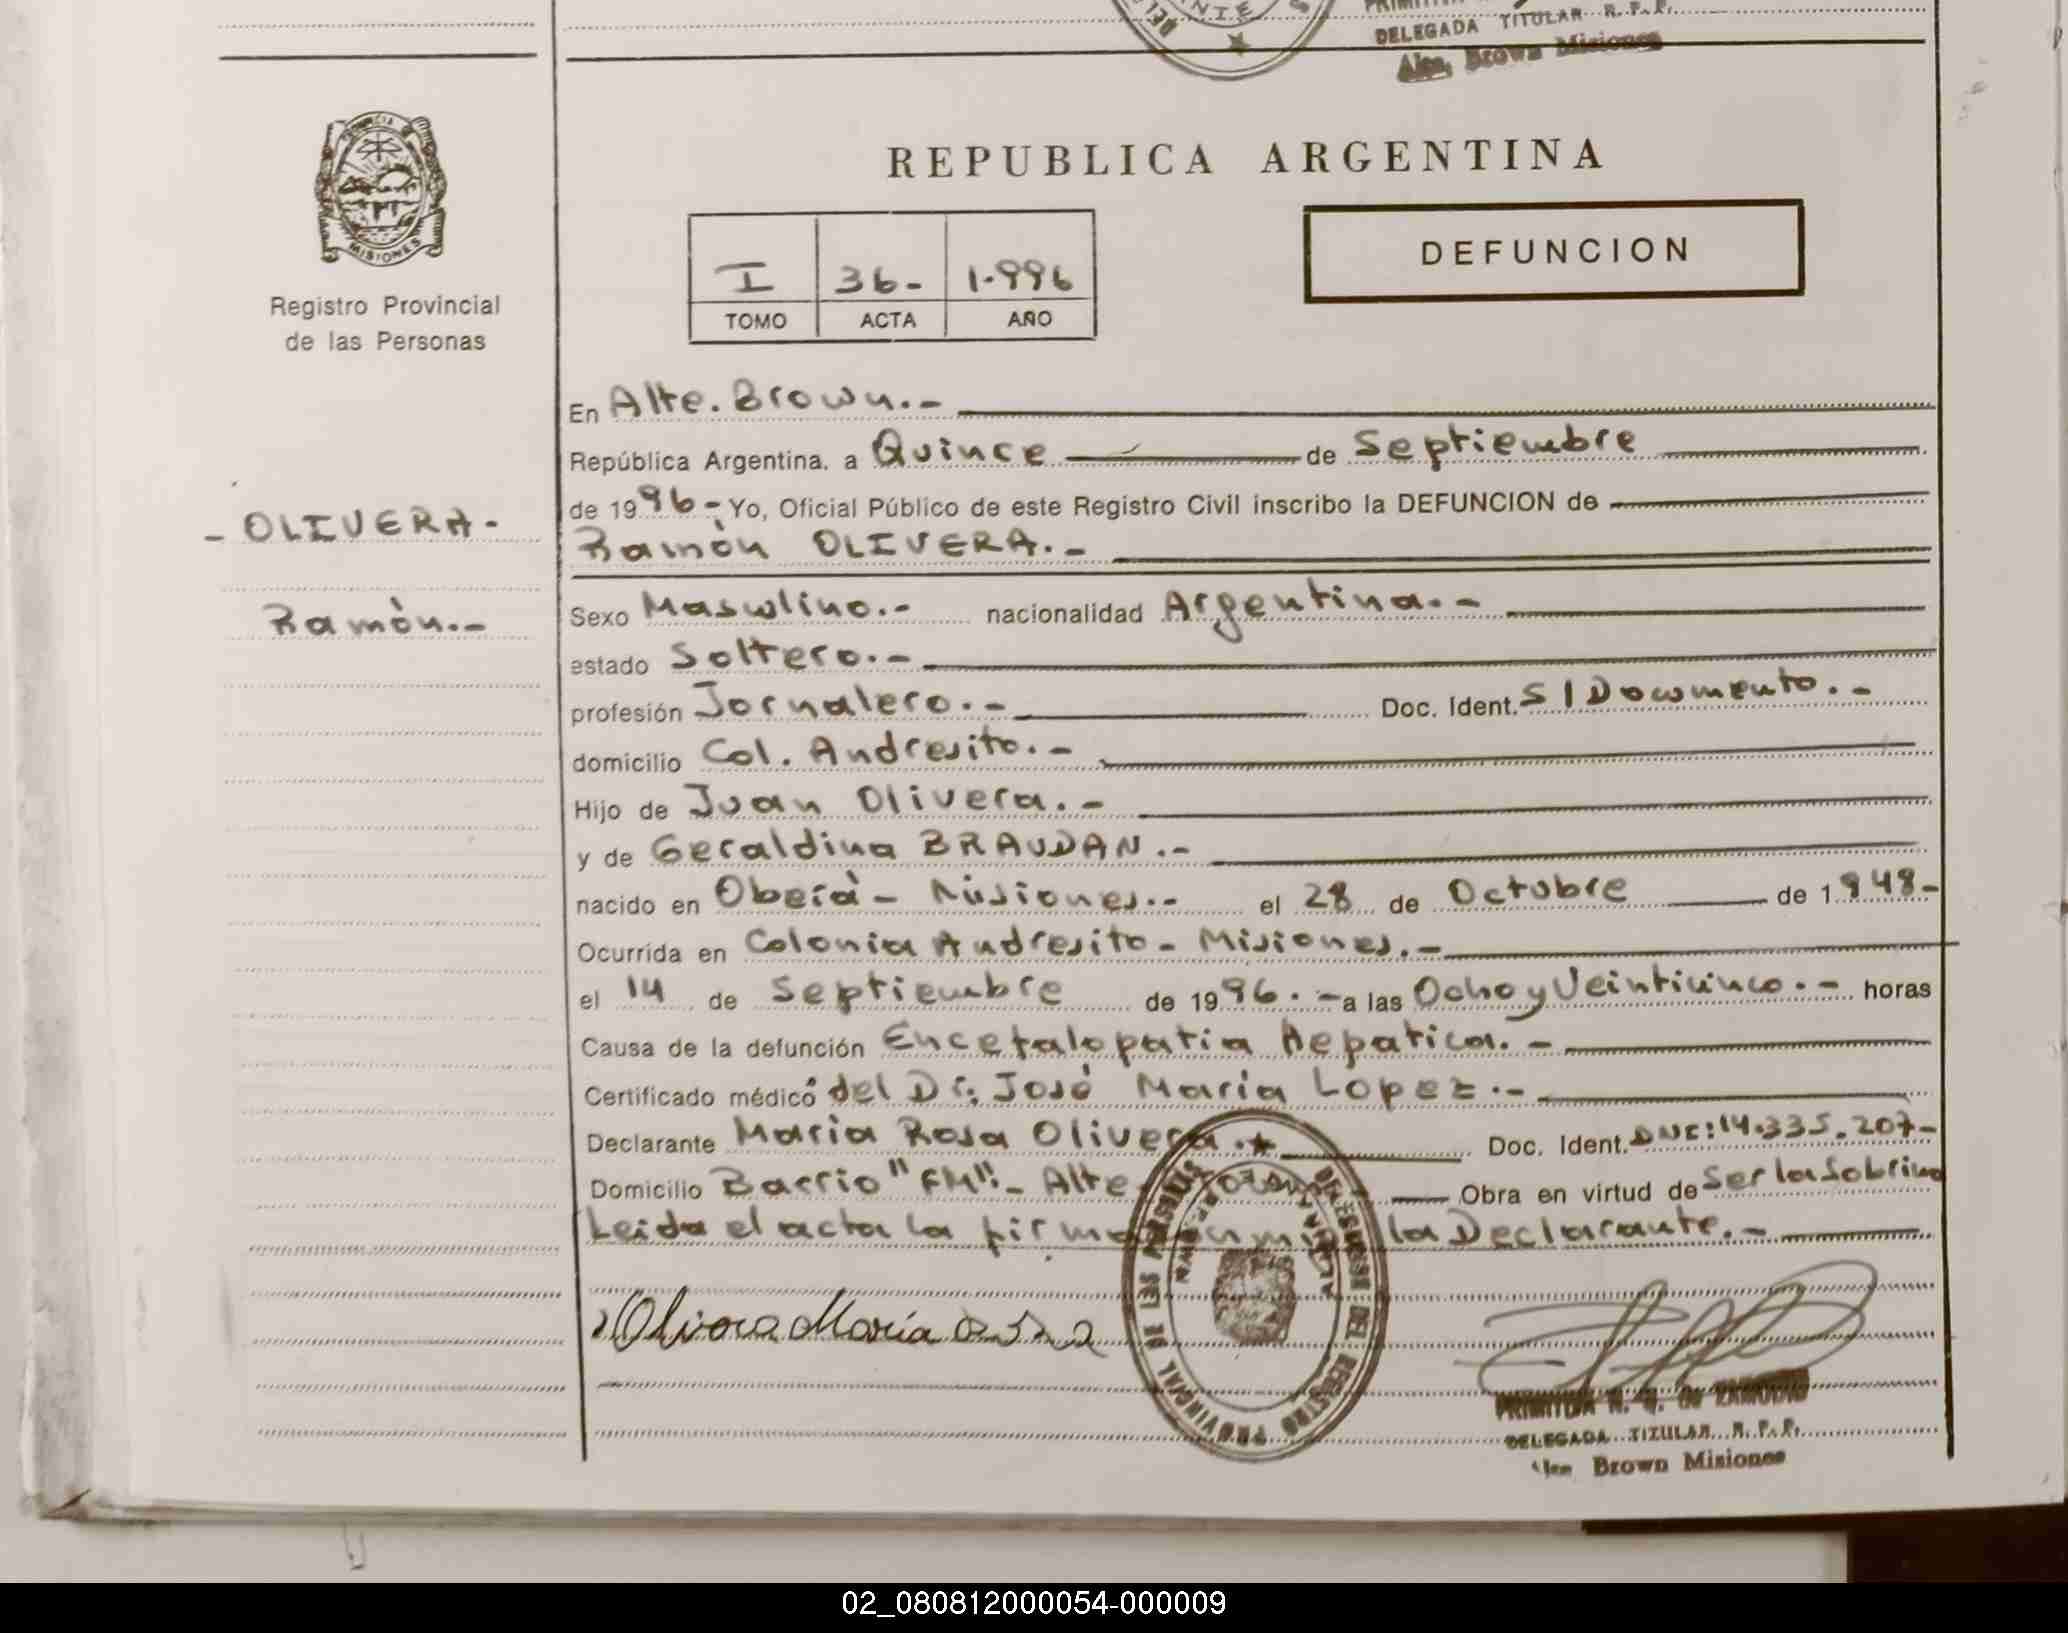 DELEGADA TITULAR R.P.P.
Alte. Brown Misiones
PROVINCIA DE
MISIONES
Registro Provincial
de las Personas
REPUBLICA ARGENTINA
I 36- 1.996
TOMO ACTA AÑO
DEFUNCION
En Alte. Brown.-
República Argentina, a Quince de Septiembre
de 1996- Yo, Oficial Público de este Registro Civil inscribo la DEFUNCION de
- OLIVERA -
Ramón OLIVERA.-
Ramón.-
Sexo Masculino.- nacionalidad Argentina.-
estado Soltero.-
profesión Jornalero.- Doc. Ident. S/Documento.-
domicilio Col. Andresito.-
Hijo de Juan Olivera.-
y de Geraldina BRAUDAN.-
nacido en Oberá - Misiones.- el 28 de Octubre de 1948-
Ocurrida en Colonia Andresito - Misiones.-
el 14 de Septiembre de 1996.- a las Ocho y Veinticinco.- horas
Causa de la defunción Encefalopatia Hepatica.-
Certificado médico del Dr. José María Lopez.-
Declarante María Rosa Olivera.- Doc. Ident. DNI: 14.335.207-
Domicilio Barrio "FM".- Alte Obra en virtud de Ser la Sobrina
Leida el acta la firma la Declarante.-
Olivera María
DELEGACION DEL REGISTRO PROVINCIAL DE LAS PERSONAS
PRIMITIVA N. G. de ZAMUDIO
DELEGADA TITULAR R.P.P.
Alte Brown Misiones
02_080812000054-000009